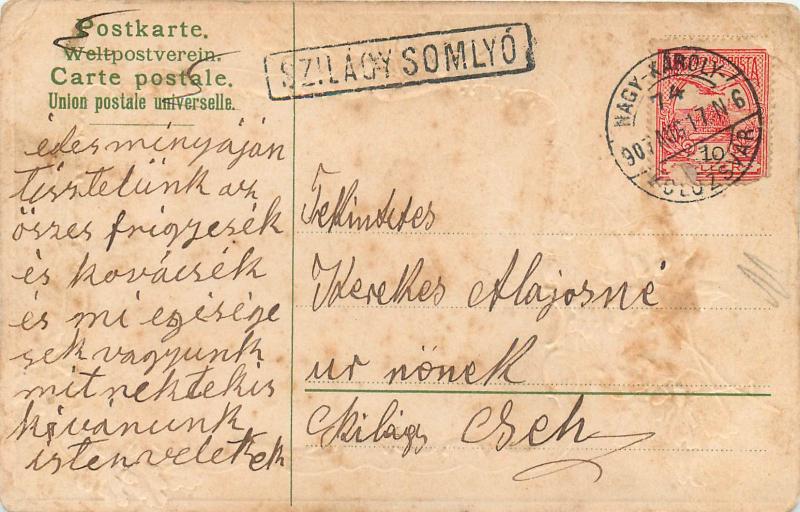 Postkarte.
Weltpostverein.
Carte postale.
Union postale universelle.
SZILÁGY SOMLYÓ
NAGY-KÁROLY-
74
907 AUG 17 N 6
KOLOZSVÁR
POSTA
10
édes mínyáján
tisztelünk az
öszes frigyesék
és kovácsék
és mi egésége
sek vagyunk
mit nektekis
kívánunk
isten veletek
Tekintetes
Kerekes Alajosné
ur nőnek
Szilágy Cseh